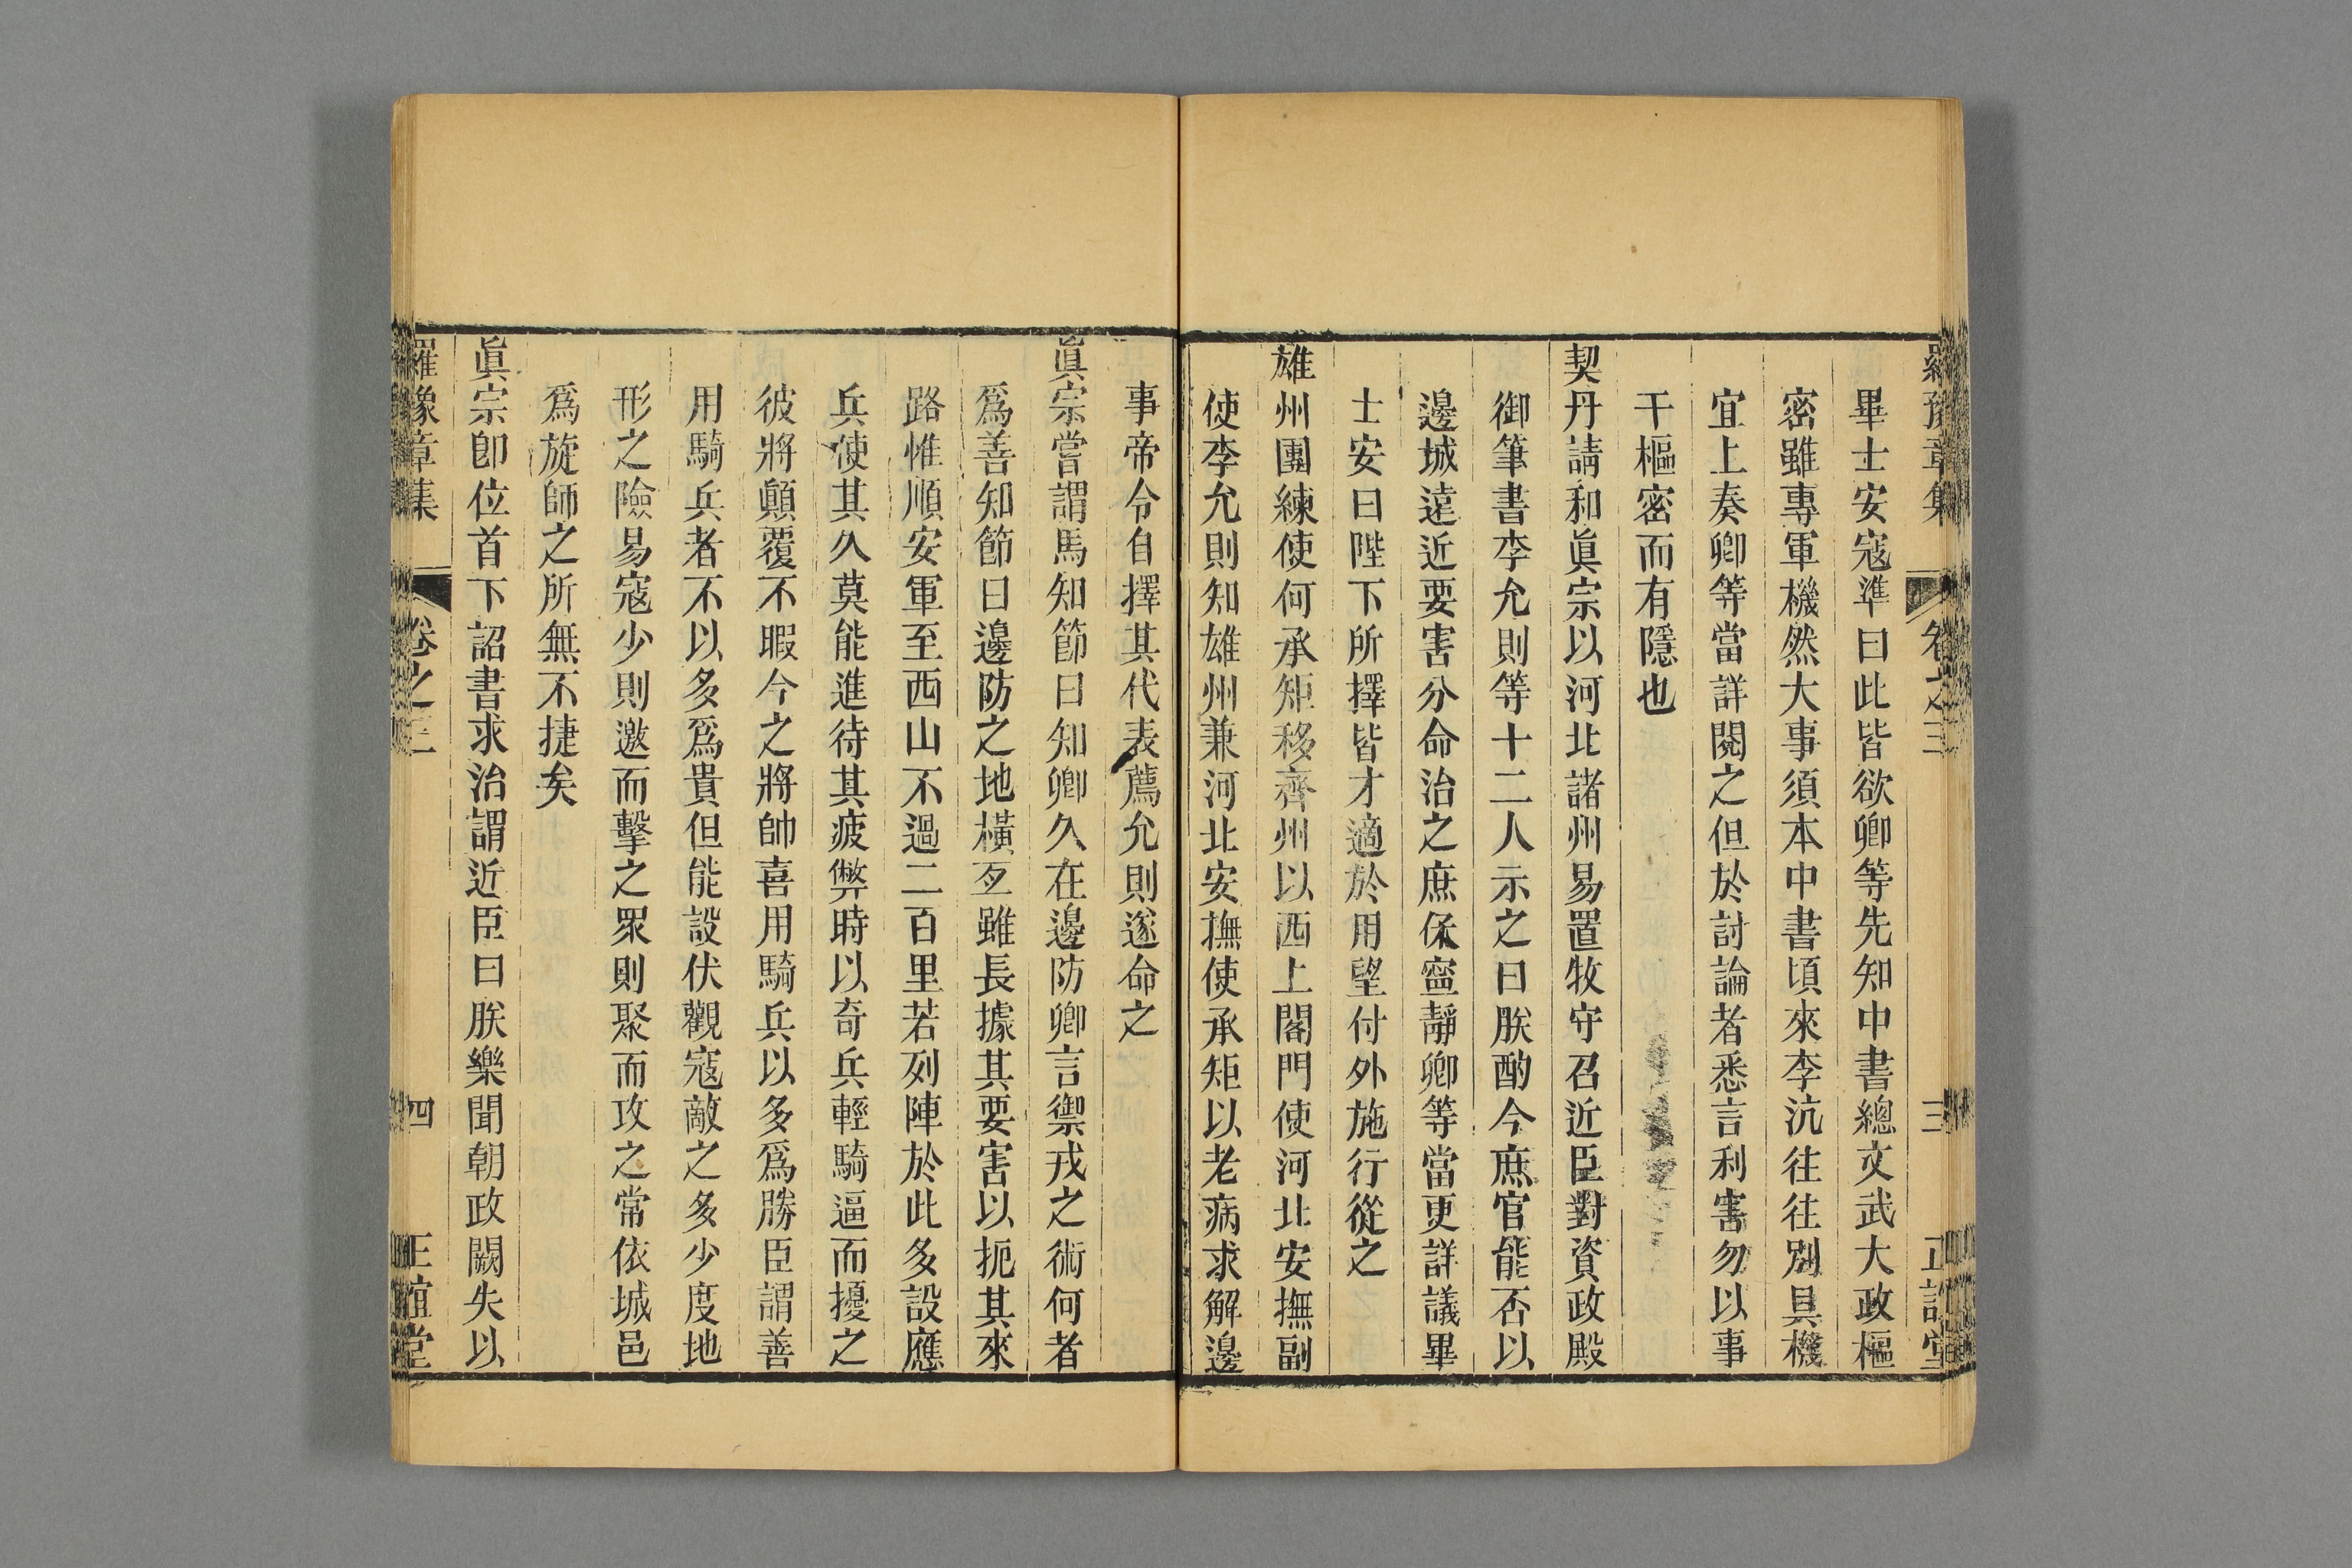 羅豫章集 卷之三 三 正誼堂
畢士安寇準曰此皆欲卿等先知中書總文武大政樞
密雖專軍機然大事須本中書頃來李沆往往別具機
宜上奏卿等當詳閱之但於討論者悉言利害勿以事
干樞密而有隱也
契丹請和眞宗以河北諸州易置牧守召近臣對資政殿
御筆書李允則等十二人示之曰朕酌今庶官能否以
邊城遠近要害分命治之庶保寧靜卿等當更詳議畢
士安曰陛下所擇皆才適於用望付外施行從之
雄州團練使何承矩移齊州以西上閤門使河北安撫副
使李允則知雄州兼河北安撫使承矩以老病求解邊
事帝令自擇其代表薦允則遂命之
眞宗嘗謂馬知節曰知卿久在邊防卿言禦戎之術何者
爲善知節曰邊防之地橫亙雖長據其要害以扼其來
路惟順安軍至西山不過二百里若列陣於此多設應
兵使其久莫能進待其疲弊時以奇兵輕騎逼而擾之
彼將顚覆不暇今之將帥喜用騎兵以多爲勝臣謂善
用騎兵者不以多爲貴但能設伏觀寇敵之多少度地
形之險易寇少則邀而擊之眾則聚而攻之常依城邑
爲旋師之所無不捷矣
眞宗卽位首下詔書求治謂近臣曰朕樂聞朝政闕失以
羅豫章集 卷之三 四 正誼堂